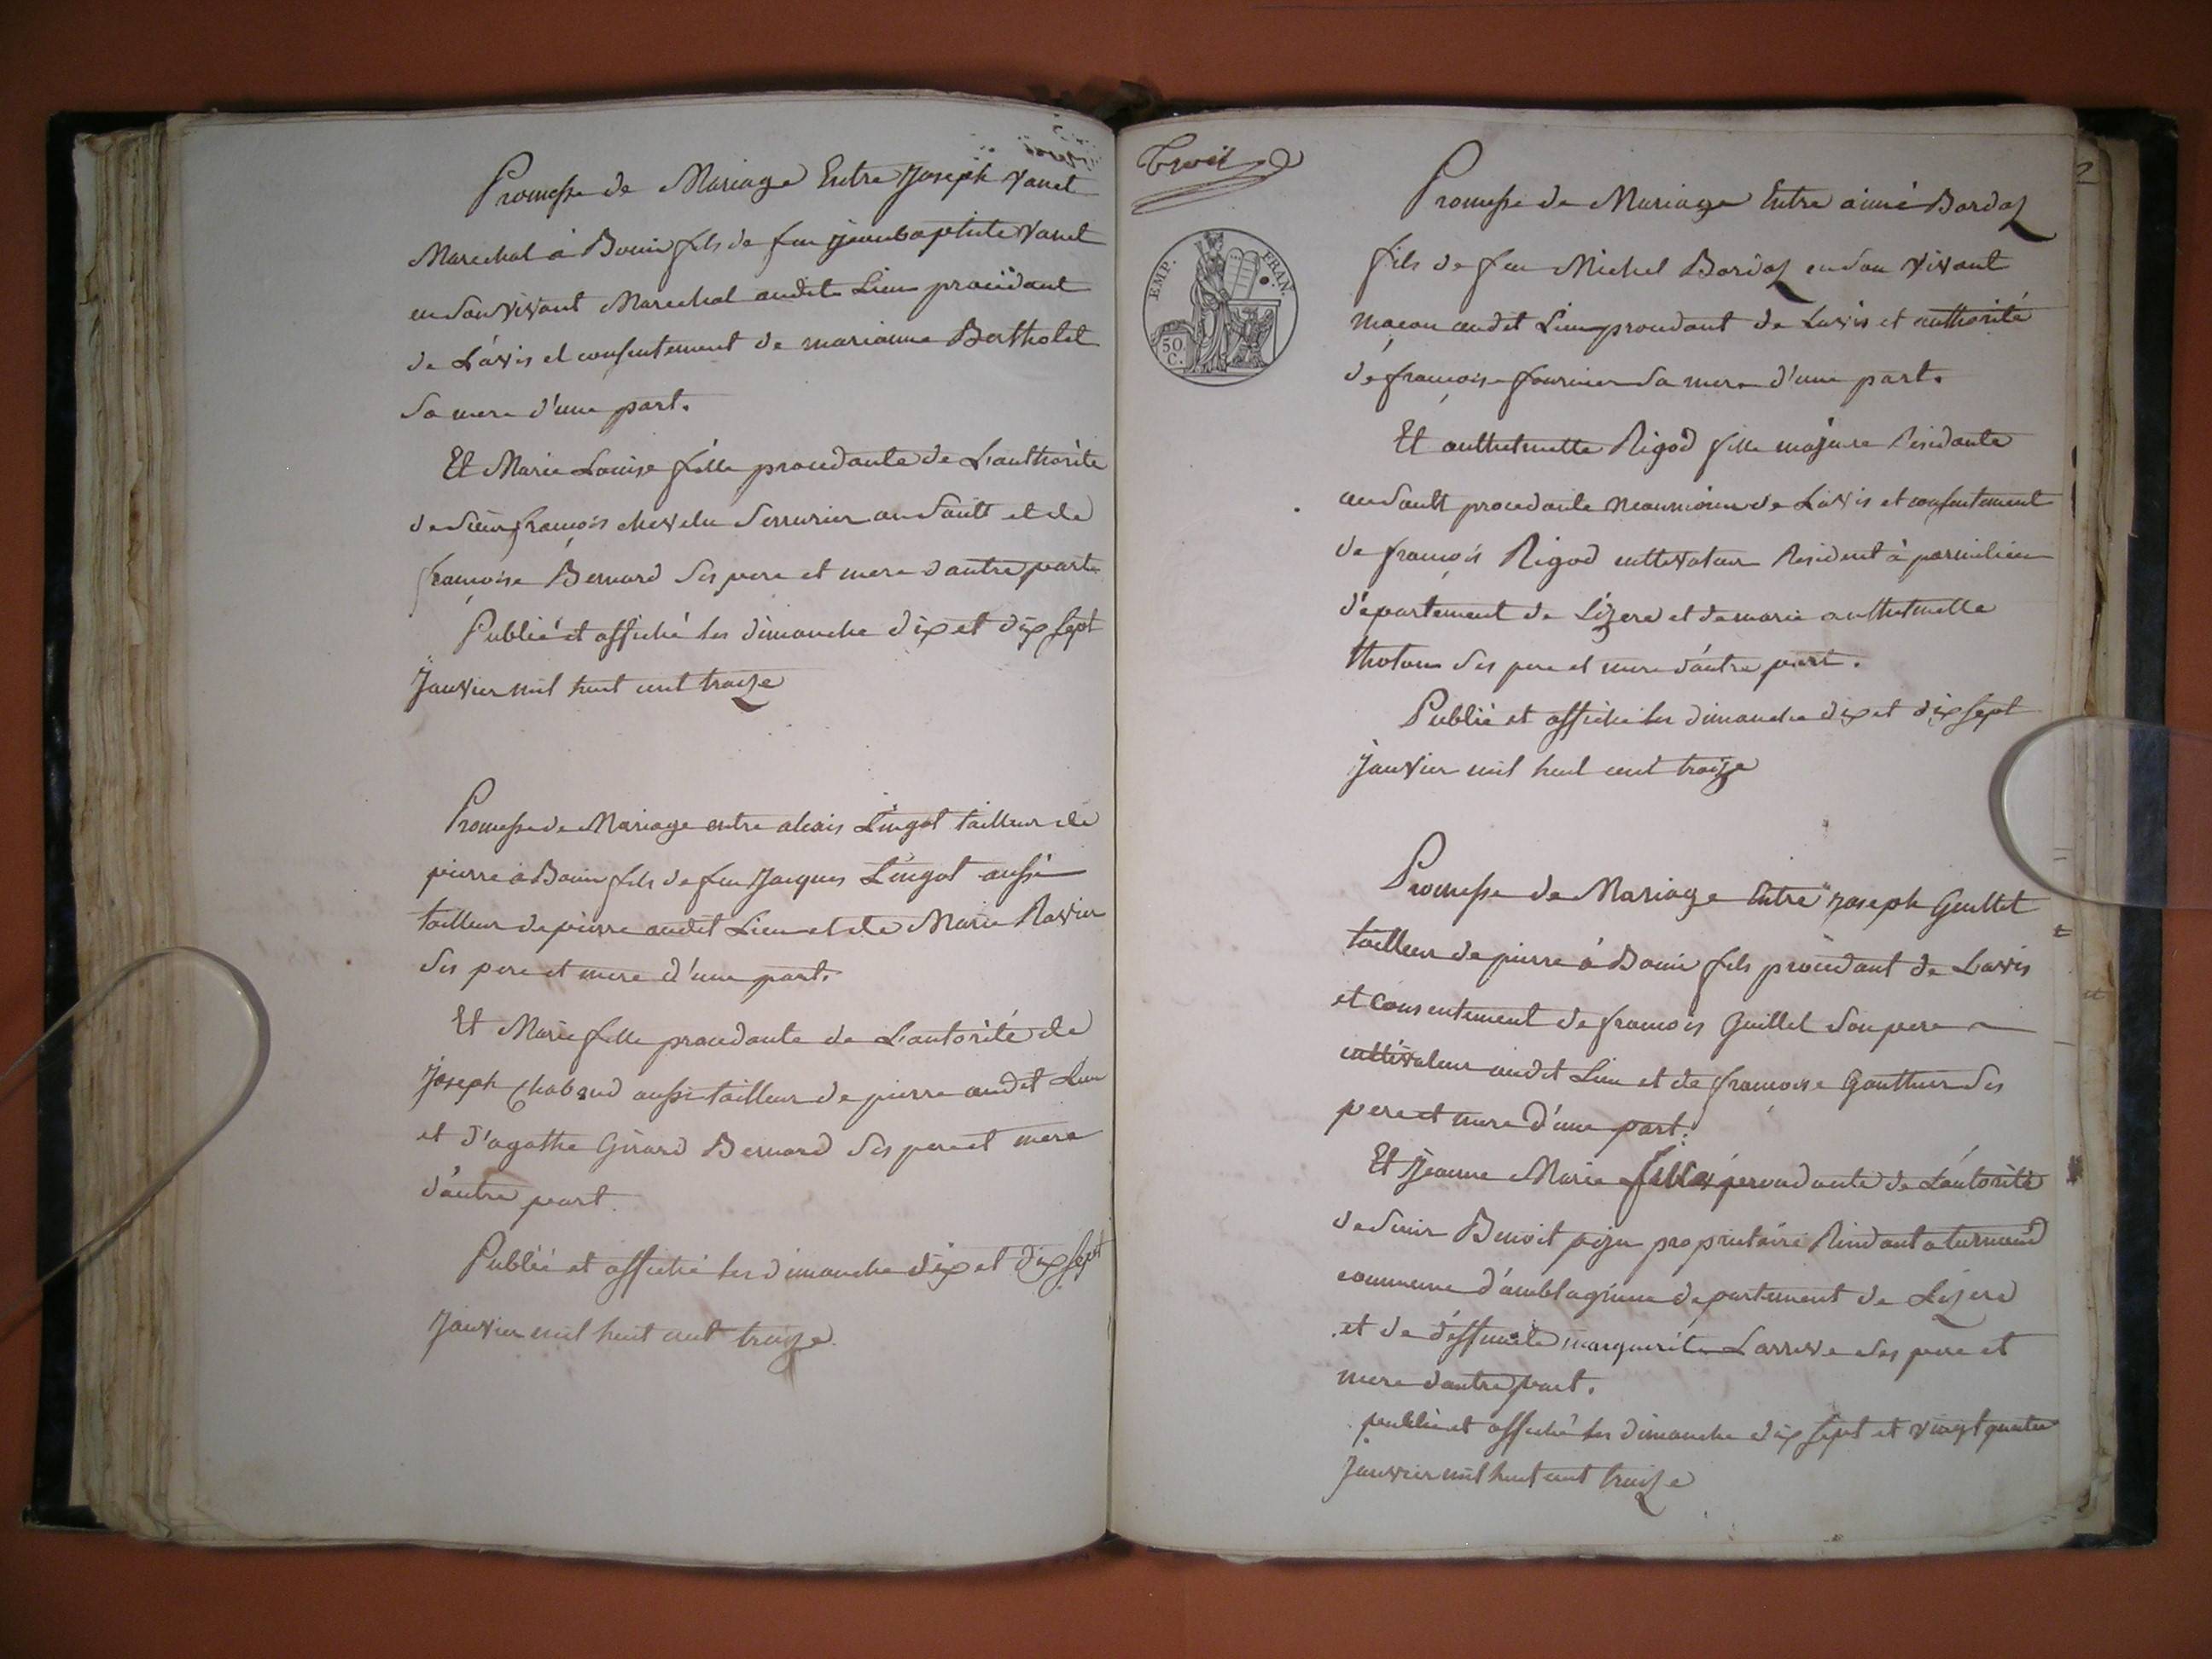 Promesse de Mariage Entre Joseph Vanet
Marechal à Bouis fils de feu jeanbaptiste Vanet
en son vivant Marechal audit Lieu procédant
de L'avis et consentement de marianne Bertholet
sa mere d'une part.
Et Marie Louise fille procedante de L'authorité
de Sieur françois chevelu Serrurier au Sault et de
françoise Bernard ses pere et mere d'autre part
Publié et affiché les dimanche dix et dix sept
Janvier mil huit cent traize
Promesse de Mariage entre alexis Lingot tailleur de
pierre à Bouis fils de feu Jacques Lingot aussi
tailleur de pierre audit Lieu et de Marie Ravier
ses pere et mere d'une part.
Et Marie fille procedante de L'autorité de
Joseph Chaboud aussi tailleur de pierre audit Lieu
et d'agathe Girard Bernard ses pere et mere
d'autre part.
Publié et affiché les dimanche dix et dix sept
Janvier mil huit cent traize.
Trois
EMP. FRAN.
50 C.
Promesse de Mariage Entre aimé Bordaz
fils de feu Michel Bordaz en son vivant
maçon audit Lieu procedant de Lavis et authorité
de françoise fournier sa mere d'une part.
Et anthelmette Rigod fille majeure Residante
au Sault procedante neanmoins de Lavis et consentement
de françois Rigod cultivateur Resident à parmilieu
département de Lizere et de marie anthelmette
ses pere et mere d'autre part.
Publié et affiché les dimanche dix et dix sept
Janvier mil huit cent traize
Promesse de Mariage Entre Joseph Guillet
tailleur de pierre à Bouis fils procedant de Lavis
et Consentement de francois Guillet son pere
cultivateur audit Lieu et de francoise Gauthier ses
pere et mere d'une part.
Et Jeanne Marie fille procedante de L'autorité
de Sieur Benoit paju propriétaire Residant a
commune d'amblagnieu departement de Lizere
et de deffunte marguerite Larrive ses pere et
mere d'autre part.
publié et affiché les dimanche dix sept et vingt quatre
Janvier mil huit cent traize